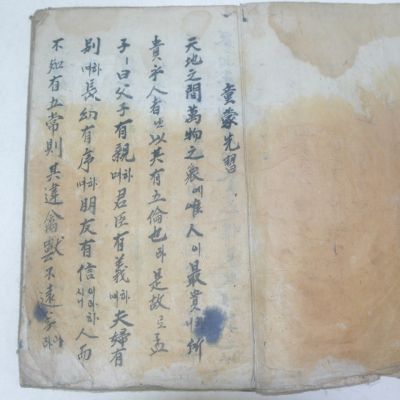 童蒙先習
天地之間萬物之衆에唯人이最貴하니所
貴乎人者는以其有五倫也라是故로孟
子ㅣ曰父子有親하며君臣有義하며夫婦有
別하며長幼有序하며朋友有信이라하시니人而
不知有五常則其違禽獸不遠矣